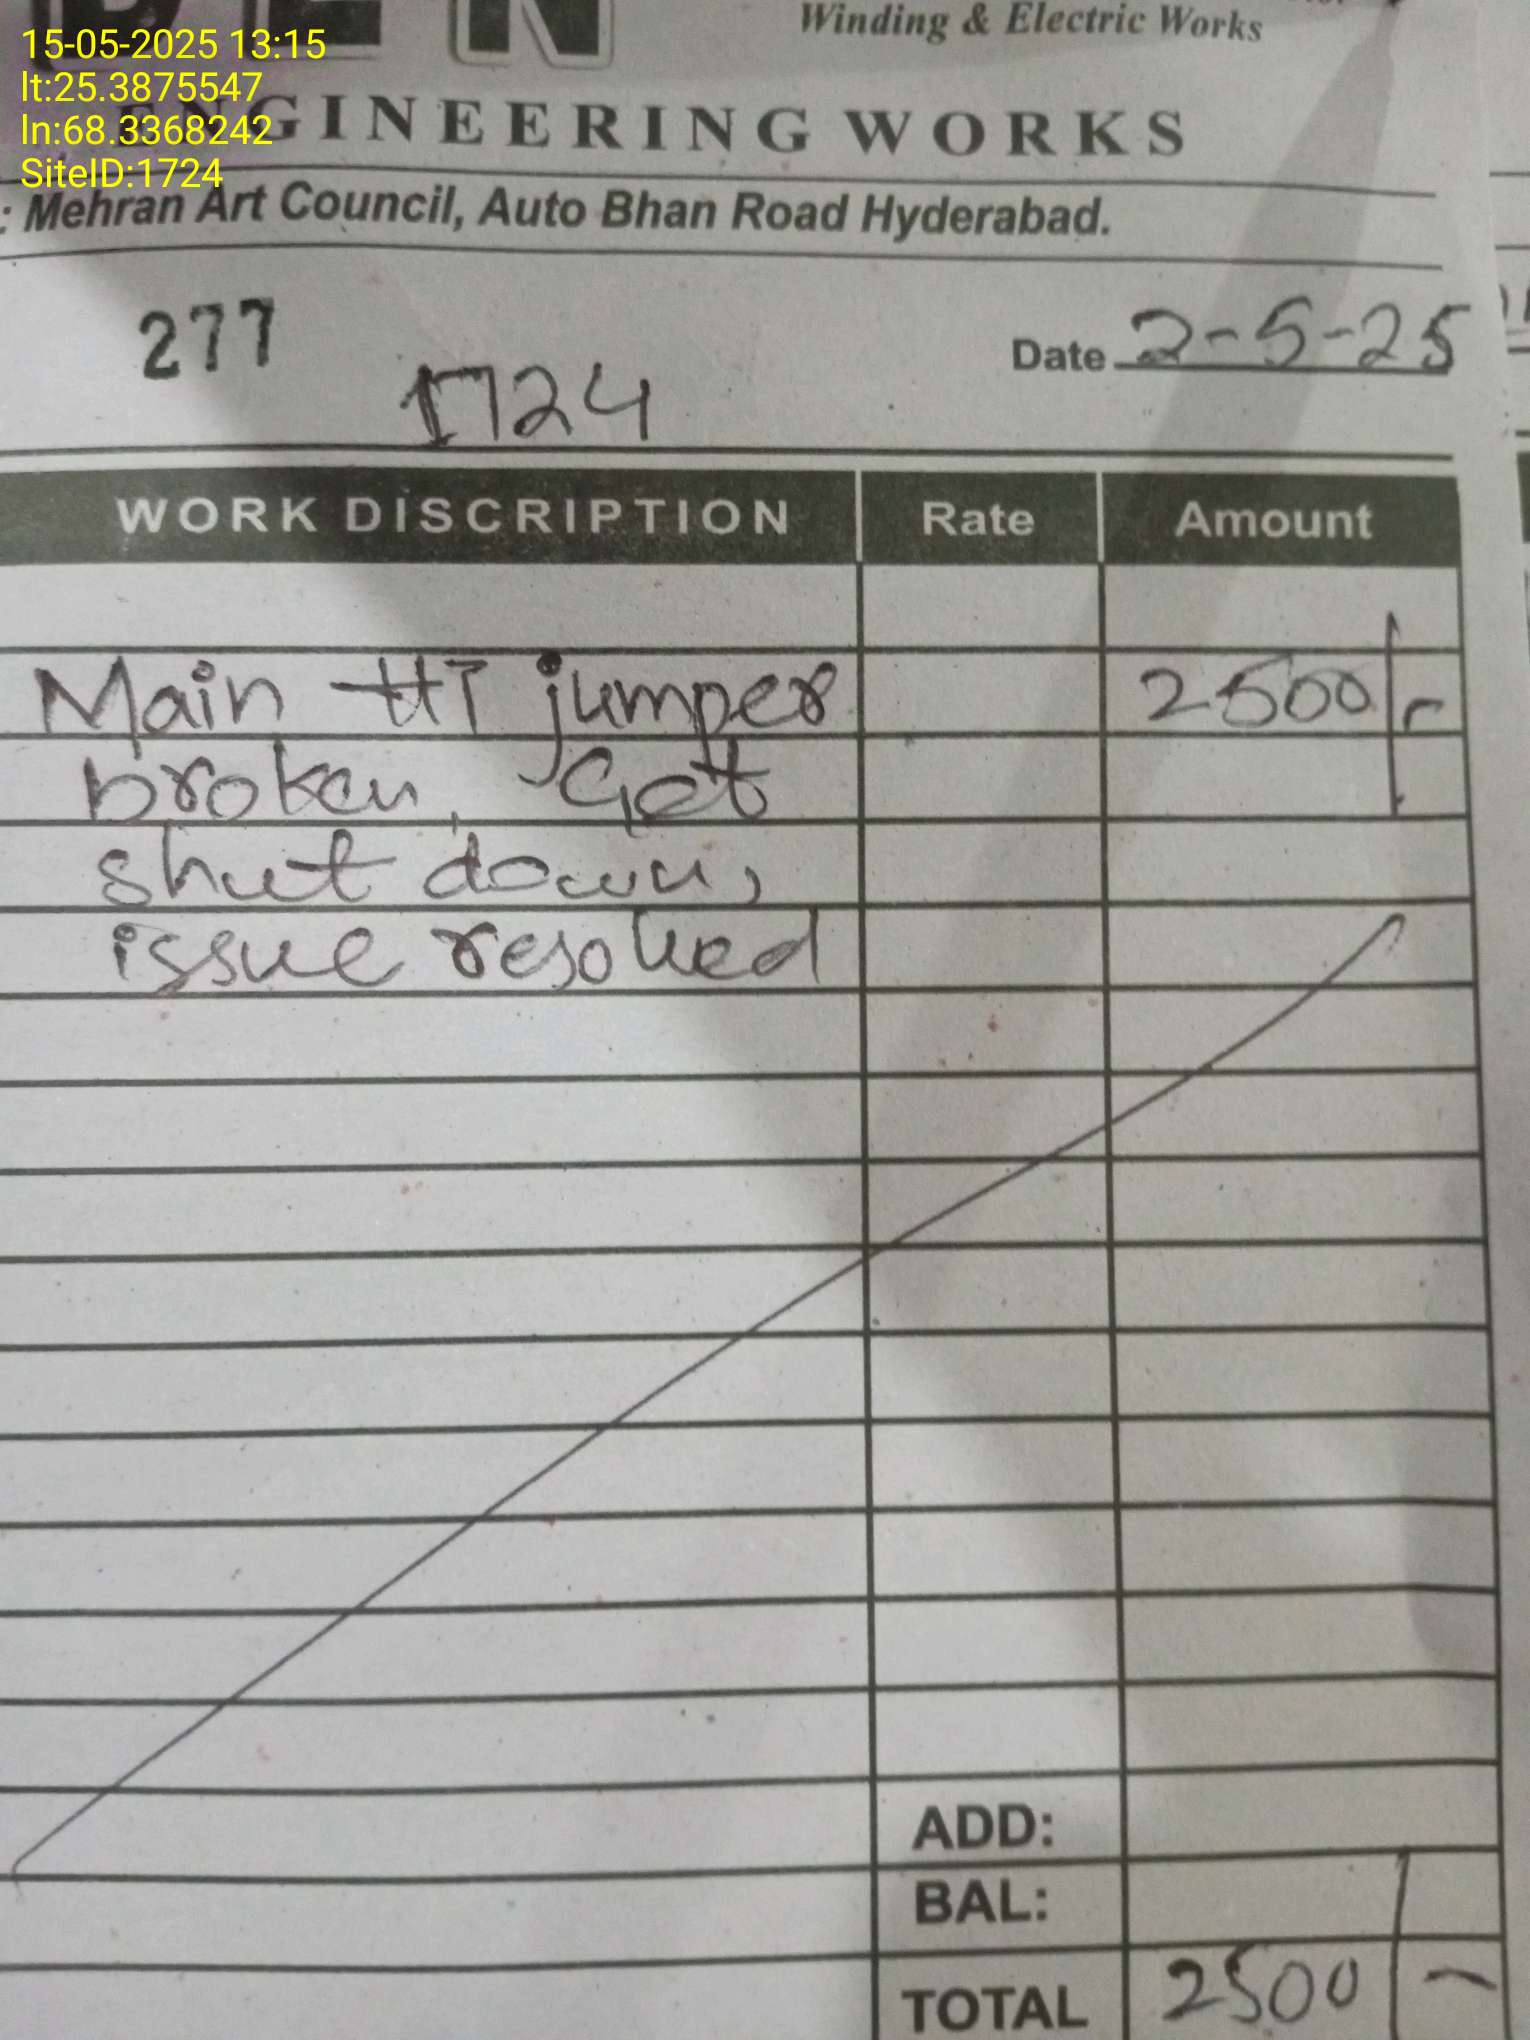 Winding & Electric Works
15-05-2025 13:15
lt:25.3875547
ln:68.3368242
SiteID:1724
ENGINEERING WORKS
: Mehran Art Council, Auto Bhan Road Hyderabad.
277
Date 2-5-25
1724
WORK DISCRIPTION Rate Amount
Main HT jumper 2500/-
broken, Get
shut down,
issue resolved
ADD:
BAL:
TOTAL 2500/-